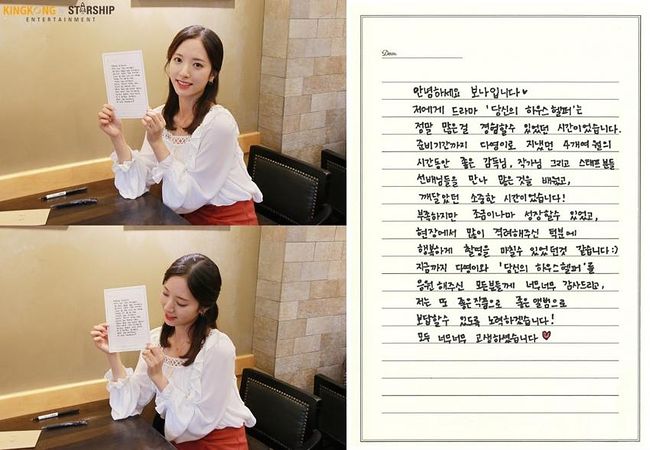 KINGKONG by STARSHIP
ENTERTAINMENT
Dear.
안녕하세요 보나입니다♥
저에게 드라마 '당신의 하우스헬퍼'는
정말 많은걸 경험할수 있었던 시간이었습니다.
준비기간까지 다영이로 지냈던 4개여월의
시간동안 좋은 감독님, 작가님 그리고 스태프분들
선배님들을 만나 많은것을 배웠고,
깨달았던 소중한 시간이었습니다!
부족하지만 조금이나마 성장할수 있었고,
현장에서 많이 격려해주신 덕분에
행복하게 촬영을 마칠수 있었던것 같습니다:)
지금까지 다영이와 '당신의 하우스헬퍼'를
응원해주신 모든분들께 너무너무 감사드리고,
저는 또 좋은작품으로 좋은앨범으로
보답할수 있도록 노력하겠습니다!
모두 너무너무 고생하셨습니다♥